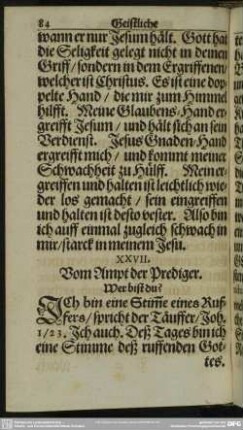 84 Geistliche
wann er nur Jesum hält. Gott hat
die Seligkeit gelegt nicht in deinen
Griff / sondern in dem Ergriffenen /
welcher ist Christus. Es ist eine dop-
pelte Hand / die mir zum Himmel
hilfft. Meine Glaubens-Hand er-
greifft Jesum / und hält sich an sein
Verdienst. Jesus Gnaden-Hand
ergreifft mich / und kommt meiner
Schwachheit zu Hülff. Mein er-
greiffen und halten ist leichtlich wie-
der los gemacht / sein eingreiffen
und halten ist desto vester. Also bin
ich auff einmal zugleich schwach in
mir / starck in meinem Jesu.
XXVII.
Vom Ampt der Prediger.
Wer bist du?
ICh bin eine Stim̃e eines Ruf-
fers / spricht der Täuffer / Joh.
1/23. Ich auch. Deß Tages bin ich
eine Stimme deß ruffenden Got-
tes.